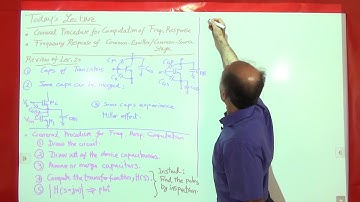 Today's Lecture
• General Procedure for Computation of Freq. Response
• Frequency Response of Common-Emitter/Common-Source
Stage
Review of Lec. 20
① Caps of Transistors
② Some caps can be merged:
③ Some caps experience
Miller effect.
• General Procedure for Freq. Resp. Computation
① Draw the circuit.
② Draw all of the device capacitances.
③ Remove or merge capacitors.
④ Compute the transfer function, H(s).
⑤ |H(s=jω)| ⇒ plot
Instead:
Find the poles
by inspection.